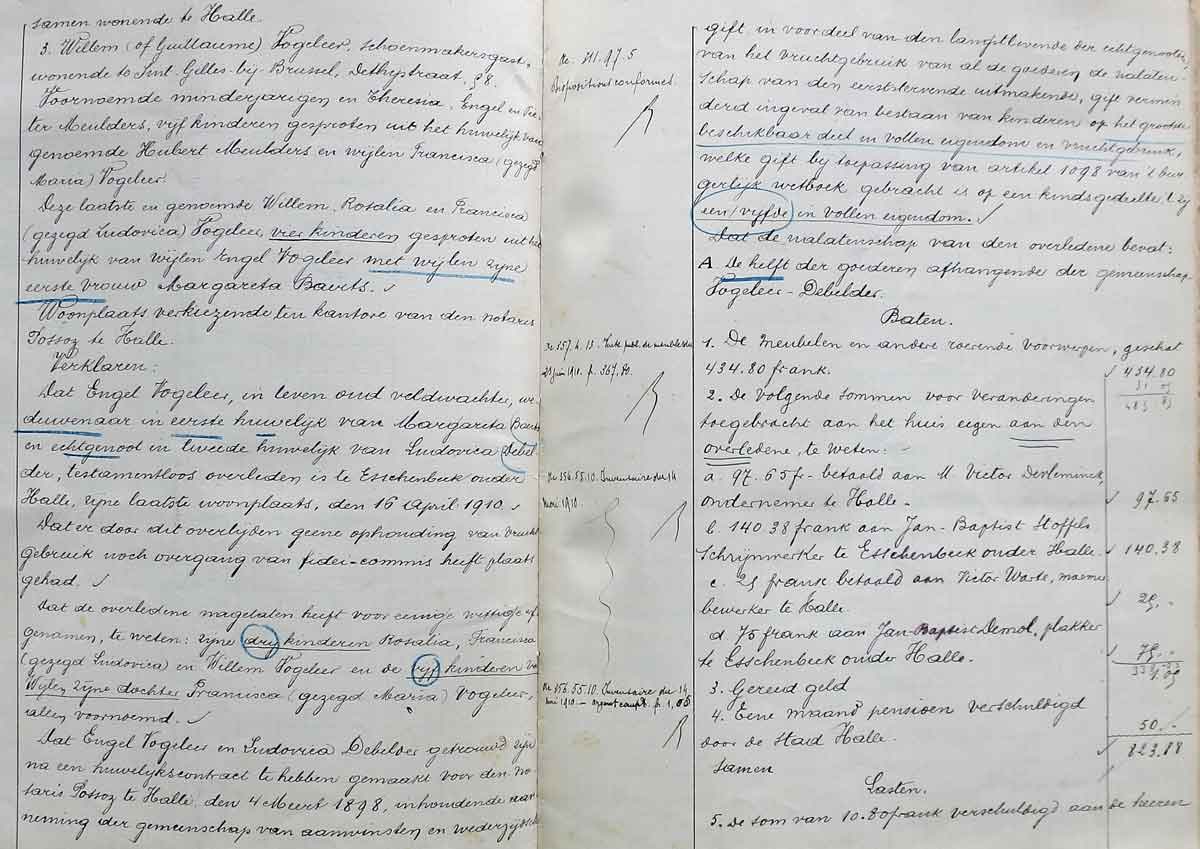 samen wonende te Halle.
3. Willem (of Guillaume) Vogeleer, schoenmakersgast,
wonende te Sint-Gilles-bij-Brussel, Dethystraat, 58.
Voornoemde minderjarigen en Theresia, Engel en Pie-
ter Meulders, vijf kinderen gesproten uit het huwelijk van
genoemde Hubert Meulders en wijlen Francisca (gezegd
Maria) Vogeleer.
Deze laatste en genoemde Willem, Rosalia en Francisca
(gezegd Ludovica) Vogeleer, vier kinderen gesproten uit het
huwelijk van wijlen Engel Vogeleer met wijlen zyne
eerste vrouw Margareta Baerts.
Woonplaats verkiezende ten kantore van den notaris
Possoz te Halle.
Verklaren:
Dat Engel Vogeleer, in leven oud veldwachter, we-
duwenaar in eerste huwelijk van Margareta Baerts
en echtgenoot in tweede huwelijk van Ludovica Debel-
der, testamentloos overleden is te Esschenbeek onder
Halle, zyne laatste woonplaats, den 16 April 1910.
Dat er door dit overlijden geene ophouding van vrucht
gebruik noch overgang van fidei-commis heeft plaats
gehad.
Dat de overledene nagelaten heeft voor eenige wettige erf-
genamen, te weten: zyne dry kinderen Rosalia, Francisca
(gezegd Ludovica) en Willem Vogeleer en de vyf kinderen van
Wijlen zyne dochter Francisca (gezegd Maria) Vogeleer,
allen voornoemd.
Dat Engel Vogeleer en Ludovica Debelder getrouwd zyn
na een huwelijkscontract te hebben gemaakt voor den no-
taris Possoz te Halle, den 4 Meert 1898, inhoudende aan-
neming der gemeenschap van aanwinsten en wederzijdsche
Dispositions conformes.
De 157.4.13. Vente pub. de meubles du
23 juin 1910. f. 367,80.
De 356.55.10. Inventaire du 14
mai 1910.
De 356.55.10. Inventaire du 14
mai 1910 f. 1,05
gift, in voordeel van den langstlevende der echtgenooten,
van het vruchtgebruik van al de goederen de nalaten-
schap van den eerststervende uitmakende, gift vermin-
derd ingeval van bestaan van kinderen op het grootste
beschikbaar deel in vollen eigendom en vruchtgebruik,
welke gift by toepassing van artikel 1098 van 't bur-
gerlijk wetboek gebracht is op een kindsgedeelte, t zy
een/vyfde in vollen eigendom.
Dat de nalatenschap van den overledene bevat:
A De helft der goederen afhangende der gemeenschap
Vogeleer-Debelder.
Baten.
1. De meubelen en andere roerende voorwerpen, geschat
434.80 frank. 434.80
2. De volgende sommen voor veranderingen
toegebracht aan het huis eigen aan den
overledene, te weten:
a. 97.65 fr. betaald aan M. Victor Devleminck,
ondernemer te Halle. 97.65
b. 140.38 frank aan Jan-Baptist Stoffels
Schrijnwerker te Esschenbeek onder Halle. 140.38
c. 25 frank betaald aan Victor Warte, marmer
bewerker te Halle. 25.-
d. 75 frank aan Jan-Baptist Demol, plakker
te Esschenbeek onder Halle. 75.-
3. Gereed geld 1.05
4. Eene maand pensioen verschuldigd
door de Stad Halle. 50.-
samen 823.88
Lasten.
5. De som van 10.80 frank verschuldigd aan de heeren